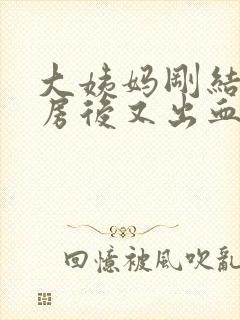 大姨妈剛結
房後又出血
回憶被風吹亂